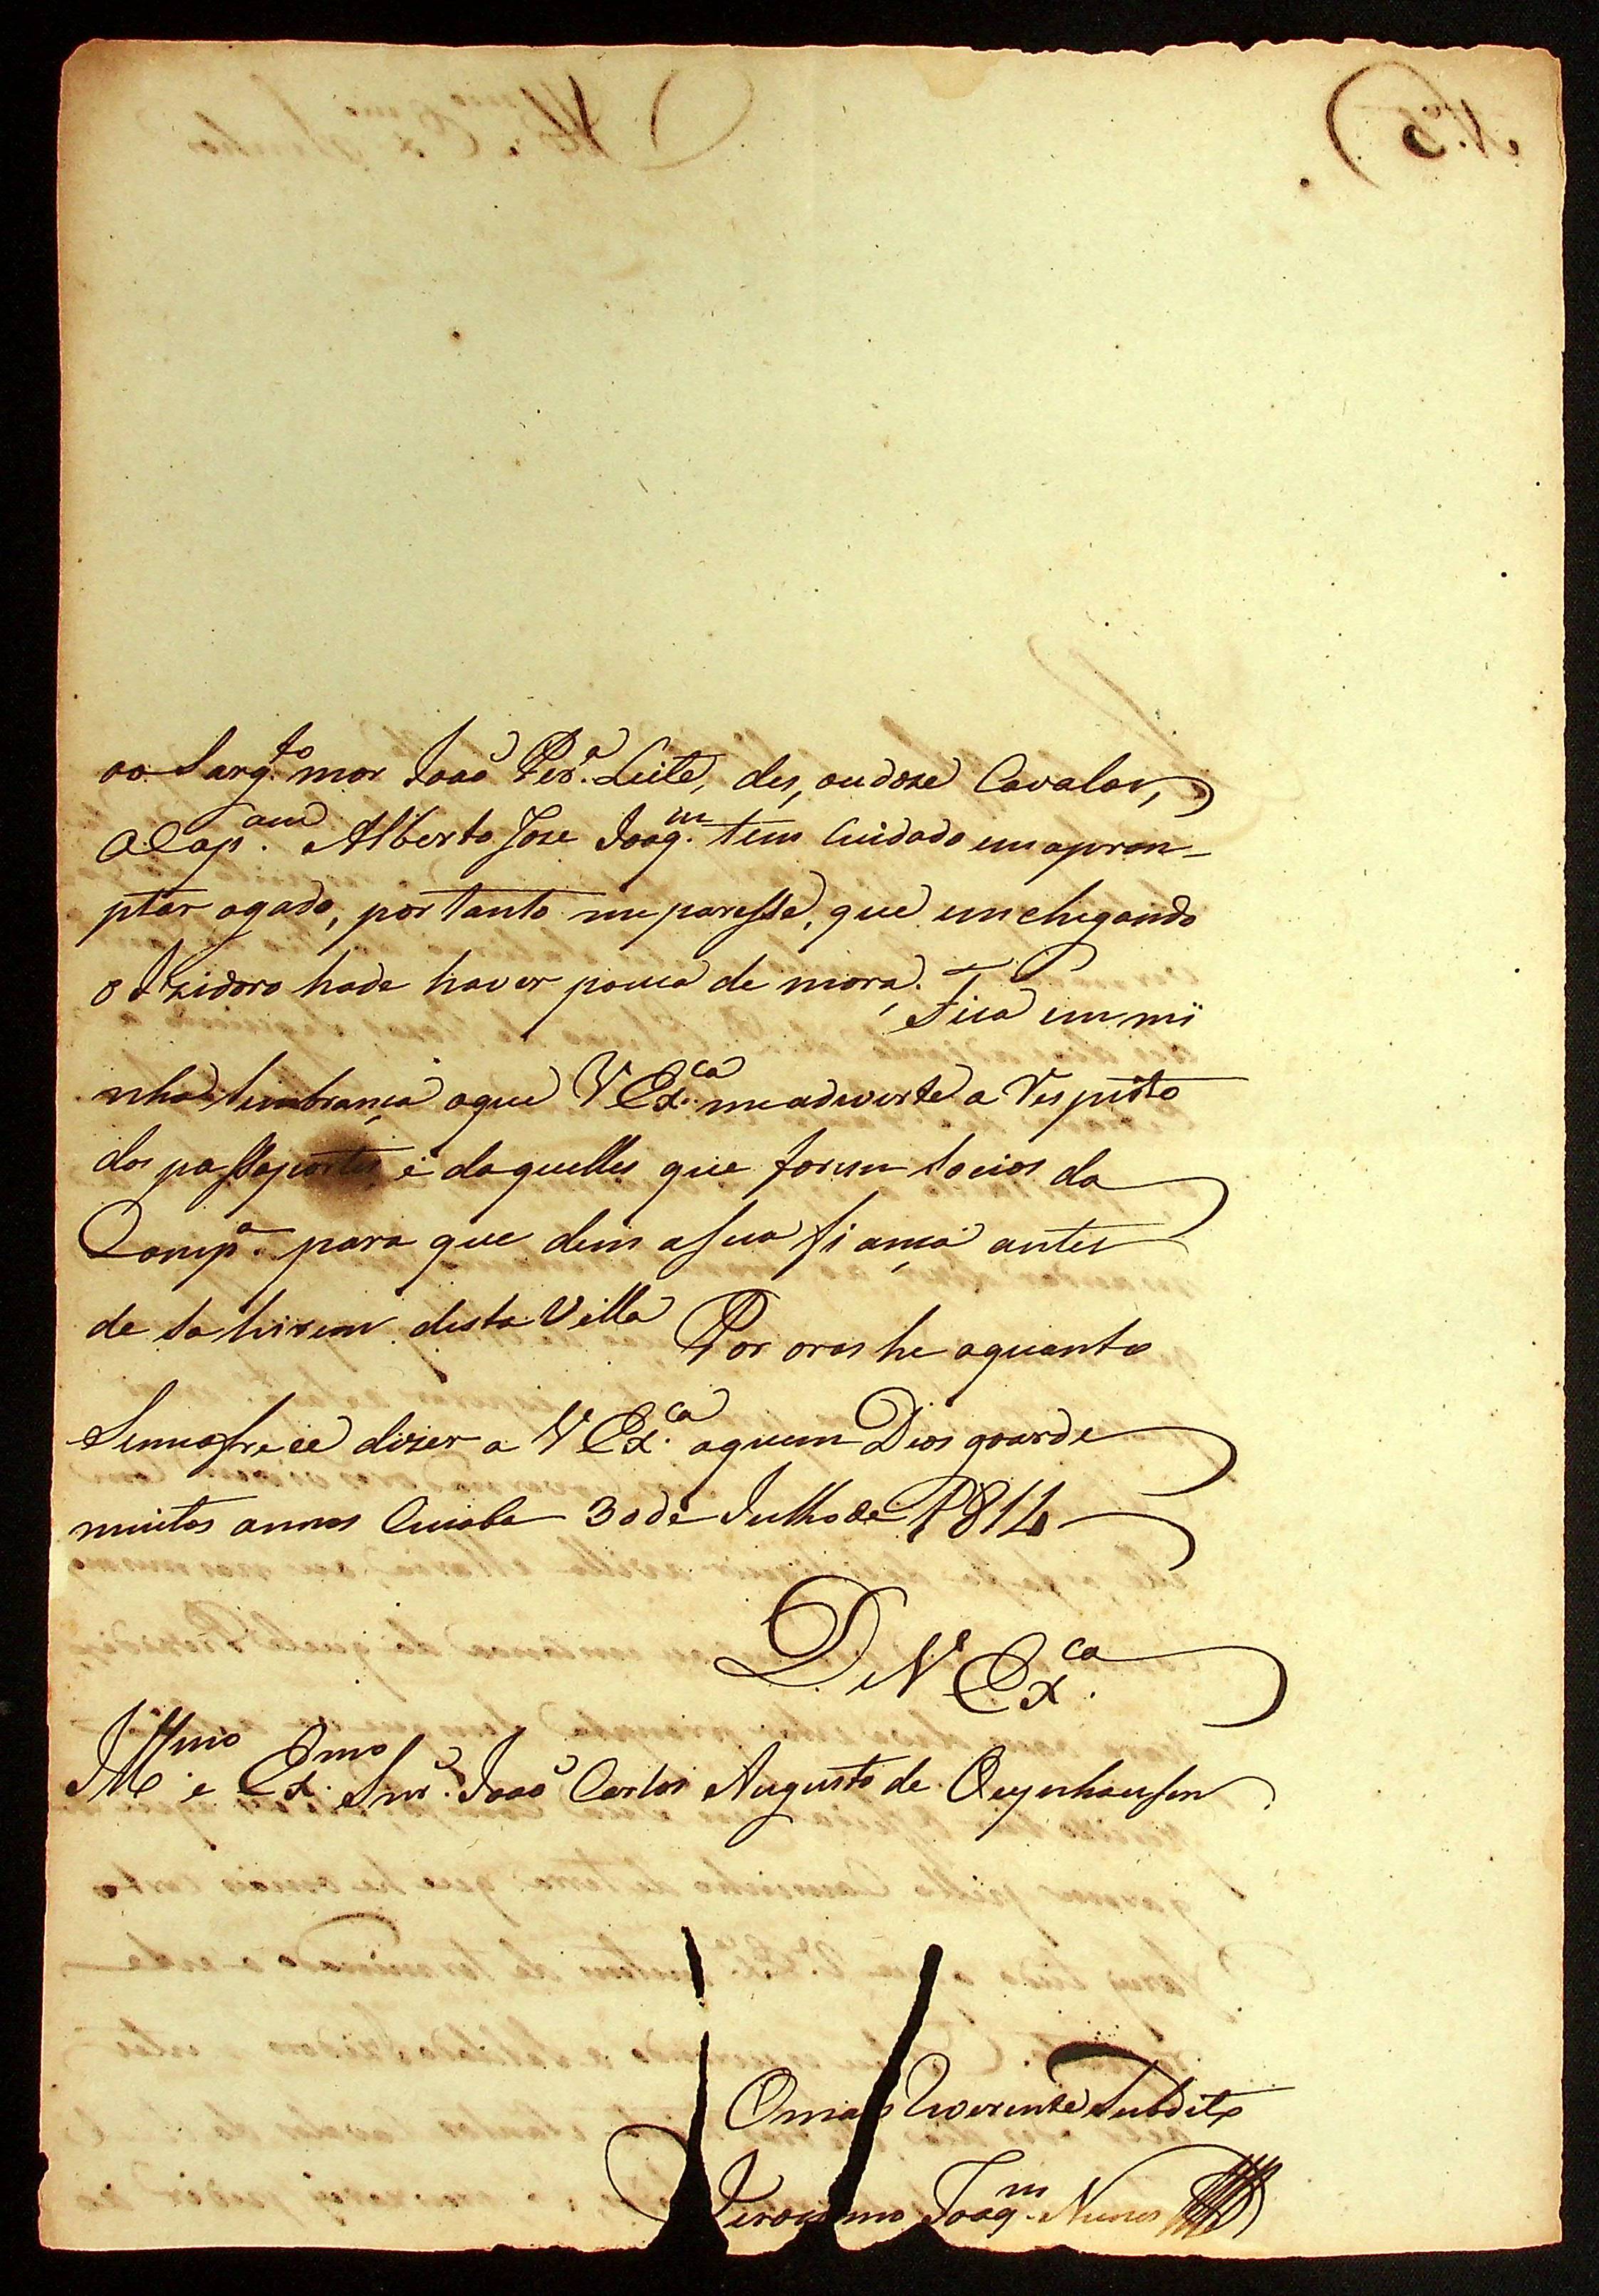 ao Sarg.to mor Joaõ Per.a Leite, des, ou doze Cavalos,
o Cap.am Alberto Joze Joaq.m tem Cuidado em apron-
ptar ogado, portanto me paresse, que em chegando
o Izidoro hade haver pouca de mora. Fica em mi
nha Limbrança oque V Ex.ca me adverte a Respeito
dos passaportes e daquelles que forem Socios da
Comp.a para que dem asua fiança antes
de Sahirem desta Villa Por ora he oquanto
Semeofrece dizer a V Ex.ca aquem Dios goarde
muitos annos Cuiaba 30 de Julho de 1814
De V Ex.ca
Ill.mo e Ex.mo Snr. Joaõ Carlos Augusto de Oeynhausen
Omais Reverente Subdito
Jeronimo Joaq.m Nunes